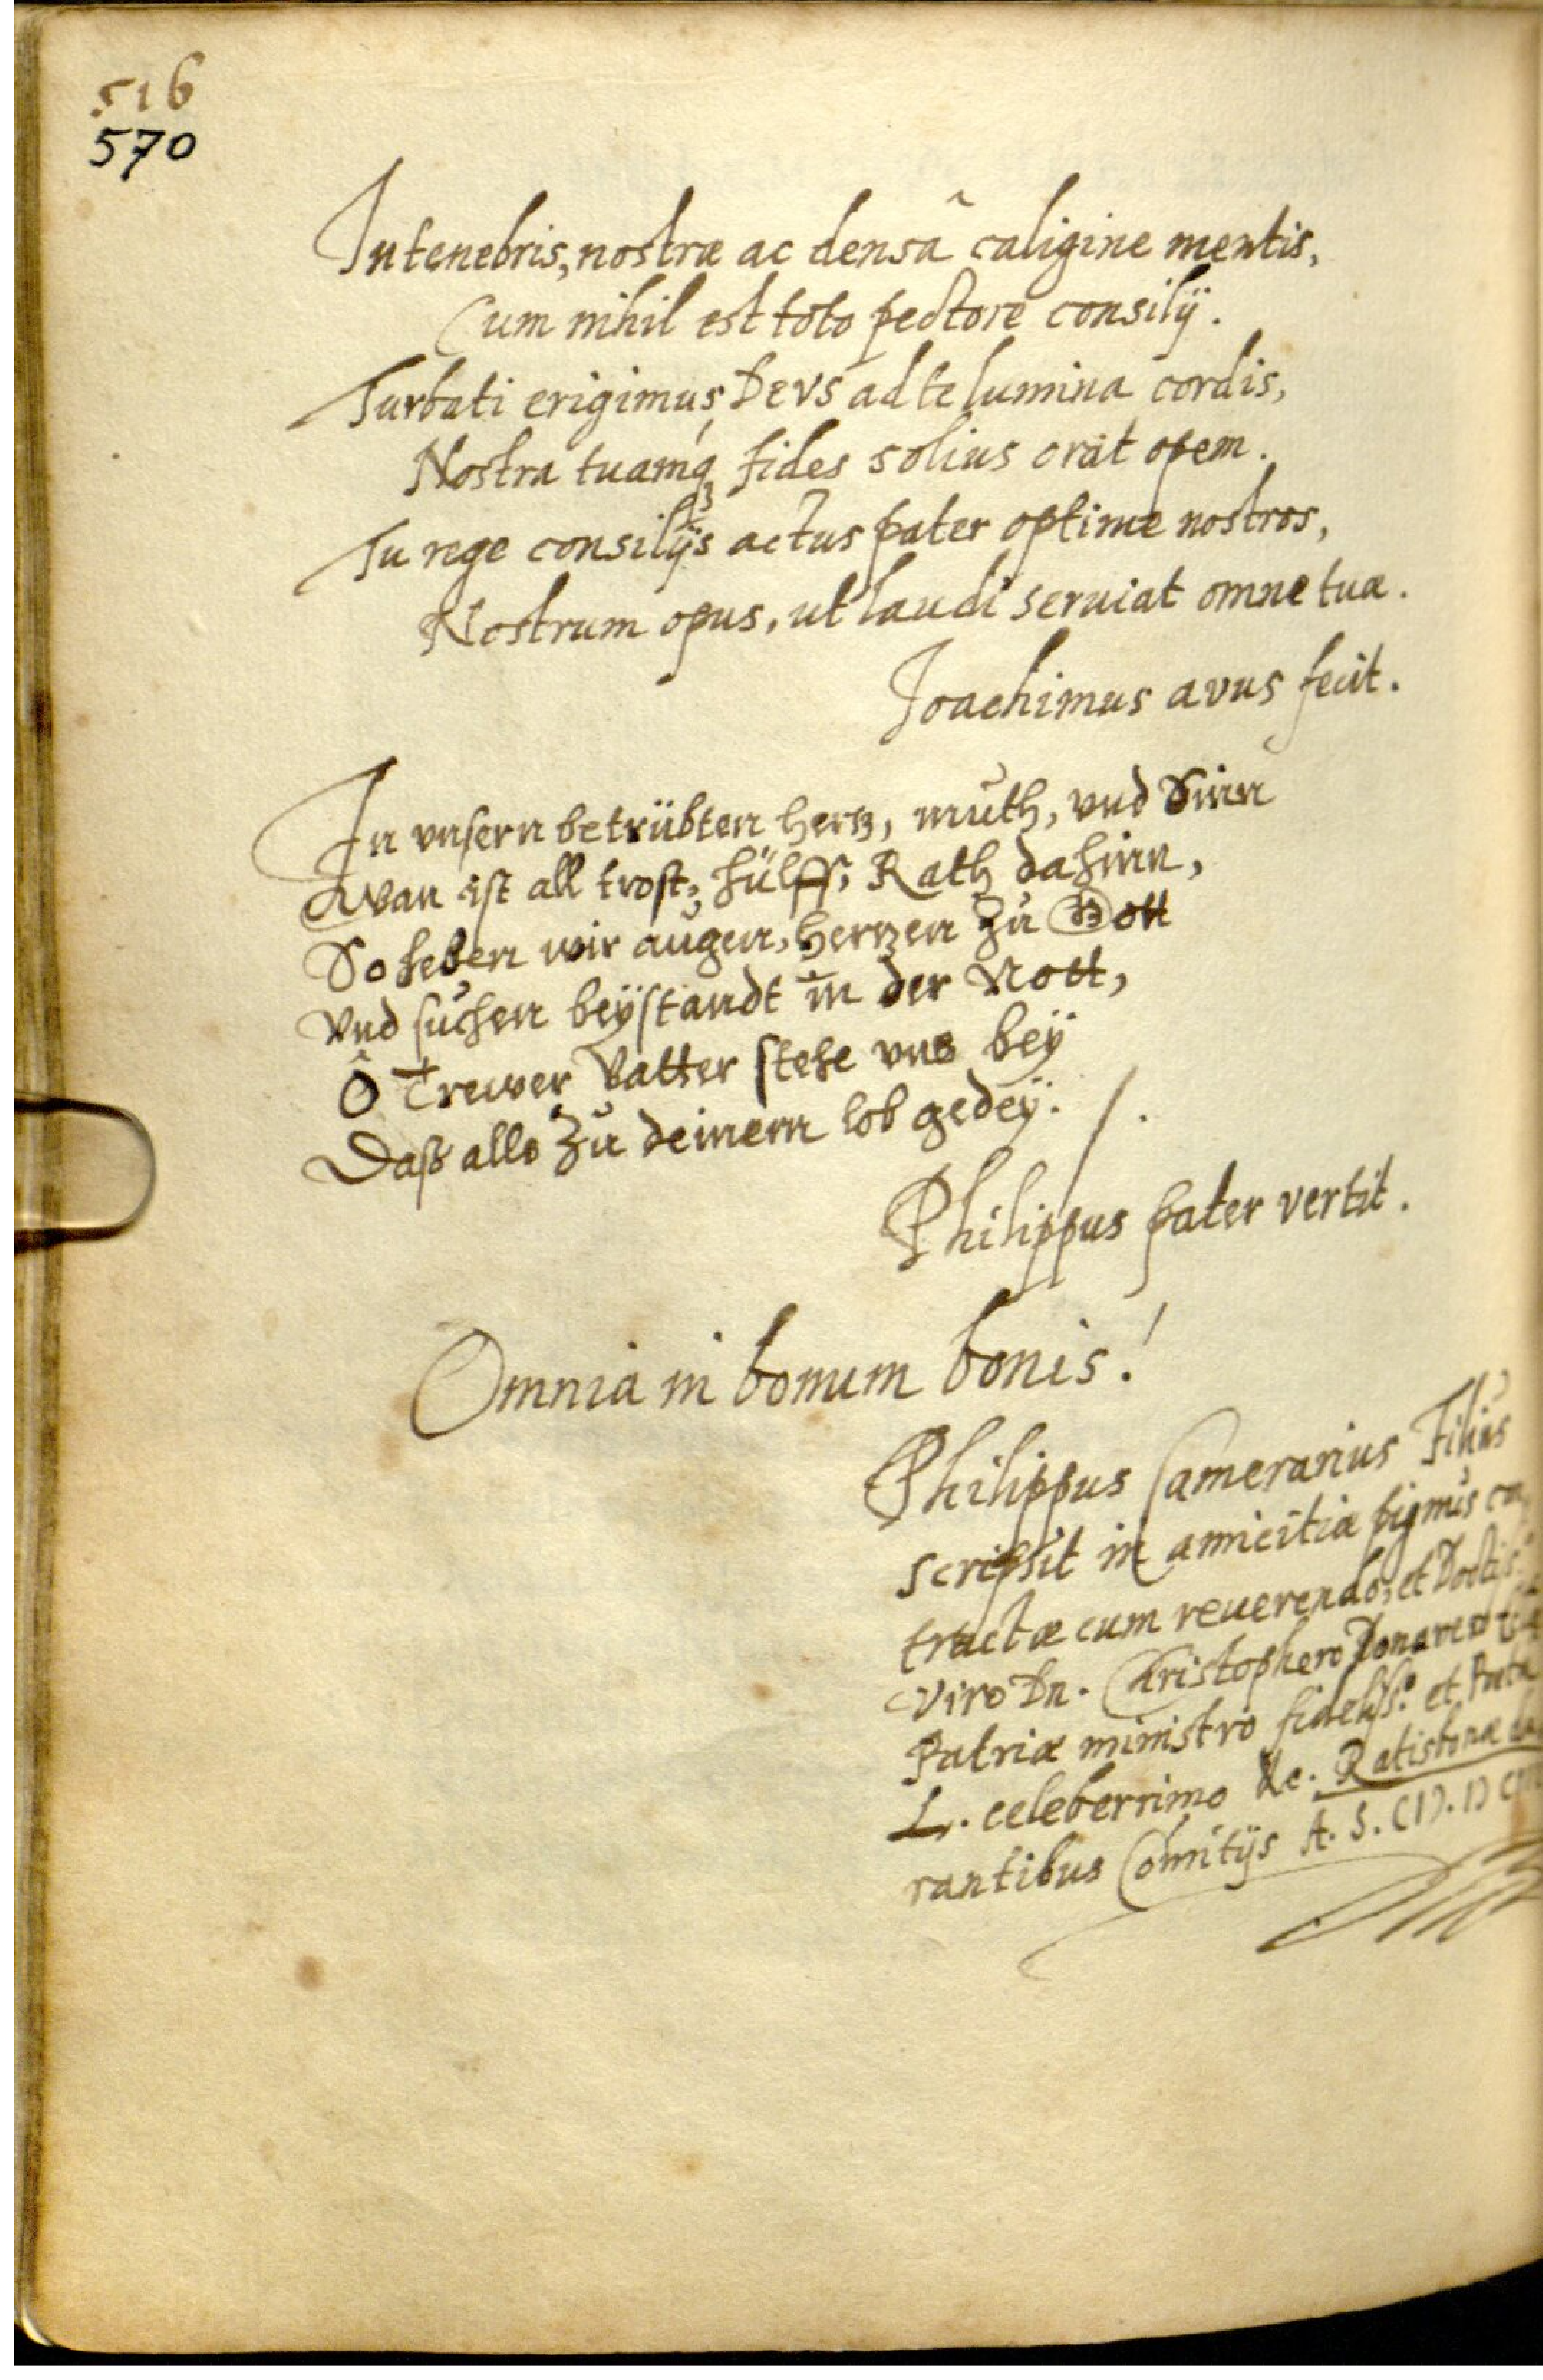 516
570
In tenebris, nostræ ac densâ caligine mentis,
Cum nihil est toto pectore consilij.
Turbati erigimus, DEVS ad te lumina cordis,
Nostra tuamq́ꝫ fides solius orat opem.
Tu rege consilijs actus pater optime nostros,
Nostrum opus, ut laudi seruiat omne tuæ.
Joachimus avus fecit.
In vnsern betrübten hertz, muth, vnd Sinn
Wan ist all trost, hülff, Rath dahinn,
So heben wir augen, hertzen zu Gott
Vnd suchen beÿstandt in der Nott,
Ô Trewer Vatter stehe vns beÿ
Daß alls zu deinem lob gedeÿ. /.
Philippus pater vertit.
Omnia in bonum bonis!
Philippus Camerarius Filius
scripsit in amicitiæ pignus con
tractæ cum reuerendo, et Doctiss.
Viro Dn. Christophero Donavero
Patriæ ministro fideliss.º et Poeta
L. celeberrimo &c. Ratisbonæ du
rantibus Comitijs A. S. CIƆ. IƆ